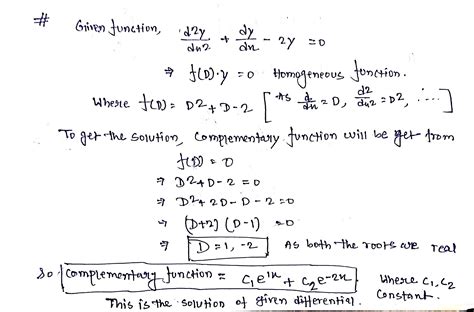 # Given function, d2y/dx2 + dy/dx - 2y = 0
⇒ f(D)·y = 0 Homogeneous function.
Where f(D) = D2+D-2 [As d/dx = D, d2/dx2 = D2, ....]
To get the solution, complementary function will be get from
f(D) = 0
⇒ D2+D-2 = 0
⇒ D2+2D-D-2 = 0
⇒ (D+2) (D-1) = 0
⇒ D = 1, -2 As both the roots are real
So, complementary function = C1e1x + C2e-2x. Where C1, C2 Constant.
This is the solution of given differential.